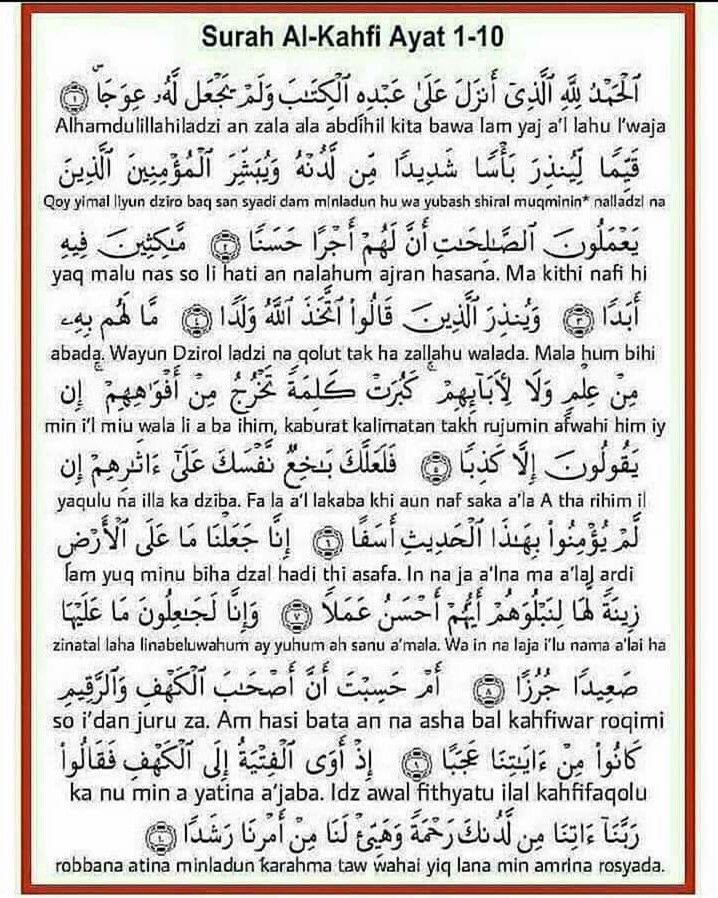 Surah Al-Kahfi Ayat 1-10
الْحَمْدُ لِلَّهِ الَّذِىٓ أَنزَلَ عَلَىٰ عَبْدِهِ الْكِتَٰبَ وَلَمْ يَجْعَل لَّهُۥ عِوَجَا ۜ ١
Alhamdulillahiladzi an zala ala abdihil kita bawa lam yaj a'l lahu I'waja
قَيِّمًا لِّيُنذِرَ بَأْسًا شَدِيدًا مِّن لَّدُنْهُ وَيُبَشِّرَ الْمُؤْمِنِينَ الَّذِينَ
Qoy yimal liyun dziro baq san syadi dam minladun hu wa yubash shiral muqminin* nalladzi na
يَعْمَلُونَ الصَّٰلِحَٰتِ أَنَّ لَهُمْ أَجْرًا حَسَنًا ٢ مَّٰكِثِينَ فِيهِ
yaq malu nas so li hati an nalahum ajran hasana. Ma kithi nafi hi
أَبَدًا ٣ وَيُنذِرَ الَّذِينَ قَالُوا۟ اتَّخَذَ اللَّهُ وَلَدًا ٤ مَّا لَهُم بِهِۦ
abada. Wayun Dzirol ladzi na qolut tak ha zallahu walada. Mala hum bihi
مِنْ عِلْمٍ وَلَا لِءَابَآئِهِمْ ۚ كَبُرَتْ كَلِمَةً تَخْرُجُ مِنْ أَفْوَٰهِهِمْ ۚ إِن
min i'l miu wala li a ba ihim, kaburat kalimatan takh rujumin afwahi him iy
يَقُولُونَ إِلَّا كَذِبًا ٥ فَلَعَلَّكَ بَٰخِعٌ نَّفْسَكَ عَلَىٰٓ ءَاثَٰرِهِمْ إِن
yaqulu na illa ka dziba. Fa la a'l lakaba khi aun naf saka a'la A tha rihim il
لَّمْ يُؤْمِنُوا۟ بِهَٰذَا الْحَدِيثِ أَسَفًا ٦ إِنَّا جَعَلْنَا مَا عَلَى الْأَرْضِ
lam yuq minu biha dzal hadi thi asafa. In na ja a'lna ma a'lal ardi
زِينَةً لَّهَا لِنَبْلُوَهُمْ أَيُّهُمْ أَحْسَنُ عَمَلًا ٧ وَإِنَّا لَجَٰعِلُونَ مَا عَلَيْهَا
zinatal laha linabeluwahum ay yuhum ah sanu a'mala. Wa in na laja i'lu nama a'lai ha
صَعِيدًا جُرُزًا ٨ أَمْ حَسِبْتَ أَنَّ أَصْحَٰبَ الْكَهْفِ وَالرَّقِيمِ
so i'dan juru za. Am hasi bata an na asha bal kahfiwar roqimi
كَانُوا۟ مِنْ ءَايَٰتِنَا عَجَبًا ٩ إِذْ أَوَى الْفِتْيَةُ إِلَى الْكَهْفِ فَقَالُوا۟
ka nu min a yatina a'jaba. Idz awal fithyatu ilal kahfifaqolu
رَبَّنَآ ءَاتِنَا مِن لَّدُنكَ رَحْمَةً وَهَيِّئْ لَنَا مِنْ أَمْرِنَا رَشَدًا ١٠
robbana atina minladun karahma taw wahai yiq lana min amrina rosyada.